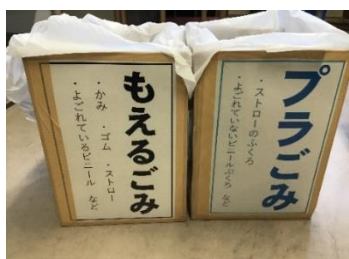 もえるごみ
・かみ ・ゴム ・ストロー
・よごれているビニール など
プラごみ
・ストローのふくろ
・よごれていないビニールぶくろ など